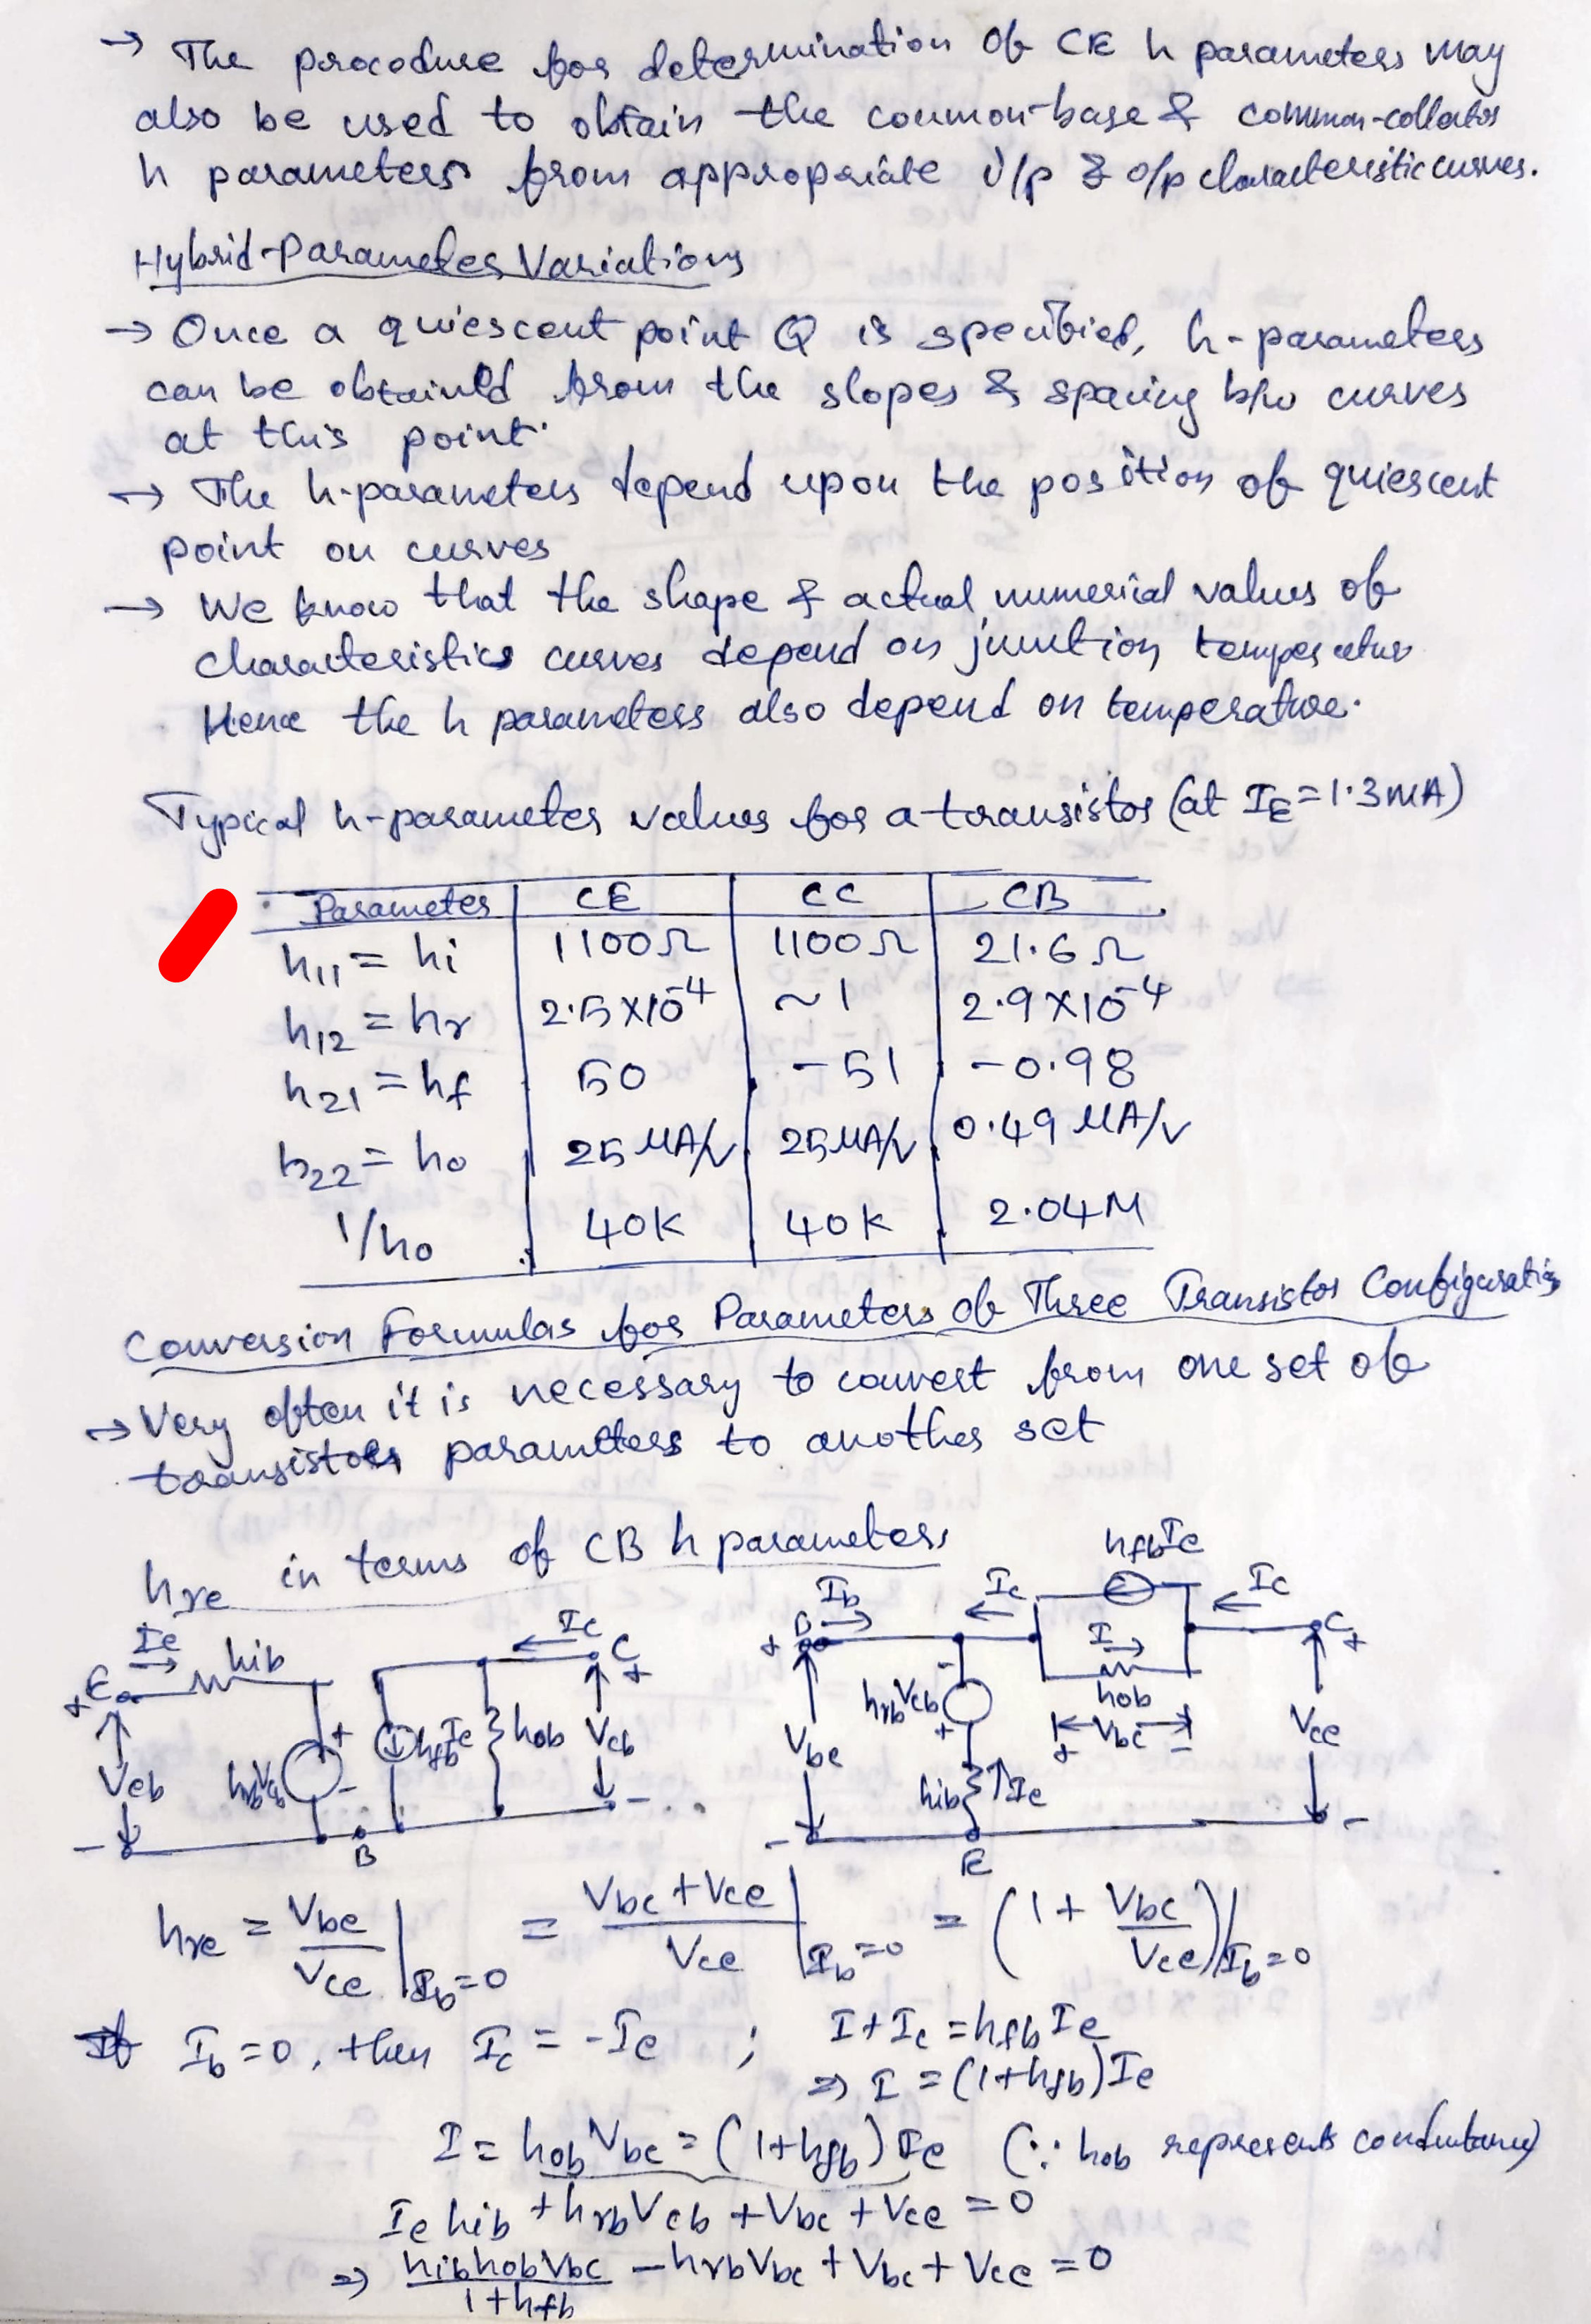 → The procedure for determination of CE h parameters may
also be used to obtain the common-base & common-collector
h parameters from appropriate i/p & o/p characteristic curves.
Hybrid-Parameter Variations
→ Once a quiescent point Q is specified, h-parameters
can be obtained from the slopes & spacing b/w curves
at this point.
→ The h-parameters depend upon the position of quiescent
point on curves
→ We know that the shape & actual numerical values of
characteristics curves depend on junction temperatur
Hence the h parameters also depend on temperature.
Typical h-parameter values for a transistor (at IE = 1.3mA)
Parameter CE CC CB
h11 = hi 1100Ω 1100Ω 21.6Ω
h12 = hr 2.5×10⁻⁴ ~1 2.9×10⁻⁴
h21 = hf 50 -51 -0.98
h22 = ho 25 μA/V 25 μA/V 0.49 μA/V
1/ho 40K 40K 2.04M
Conversion Formulas for Parameters of Three Transistor Configuratios
→ Very often it is necessary to convert from one set of
transistors parameters to another set
hre in terms of CB h parameters
hfbIe
Ie hib Ic C + Ib Ic Ic
+ E + B I C +
hrbVcb hob
Veb hrbVcb + - hfbIe hob Vcb Vbe + + Vbc - Vce
hib Ie
- B - - E -
hre = Vbe/Vce |Ib=0 = (Vbc + Vce)/Vce |Ib=0 = (1 + Vbc/Vce)|Ib=0
If Ib = 0, then Ic = -Ie ; I + Ic = hfb Ie
⇒ I = (1+hfb)Ie
I = hob Vbc = (1+hfb) Ie (∵ hob represents conductance)
Ie hib + hrb Vcb + Vbc + Vce = 0
⇒ hib hob Vbc/1+hfb - hrb Vbc + Vbc + Vce = 0